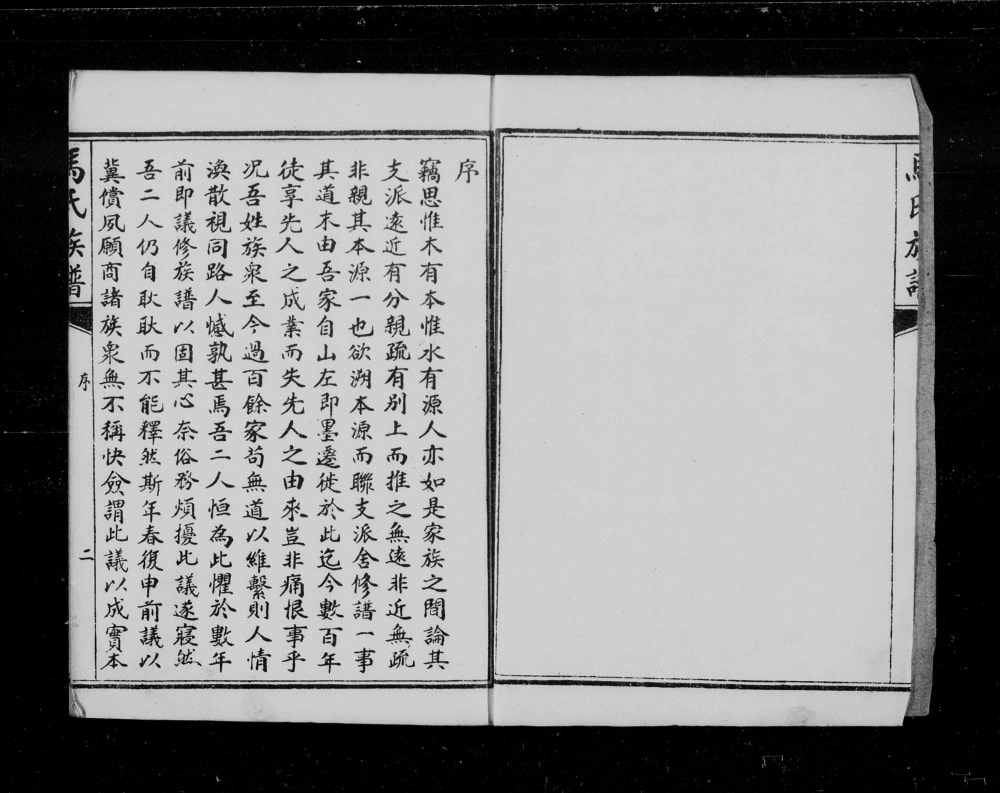 馬氏族譜
序
竊思惟木有本惟水有源人亦如是家族之間論其
支派遠近有分親疏有別上而推之無遠非近無疏
非親其本源一也欲溯本源而聯支派舍修譜一事
其道末由吾家自山左即墨遷徙於此迄今數百年
徒享先人之成業而失先人之由來豈非痛恨事乎
况吾姓族衆至今過百餘家苟無道以維繫則人情
渙散視同路人憾孰甚焉吾二人恒為此懼於數年
前即議修族譜以固其心奈俗務煩擾此議遂寢然
吾二人仍自耿耿而不能釋然斯年春復申前議以
冀償夙願商諸族衆無不稱快僉謂此議以成實本
馬氏族譜
序
二